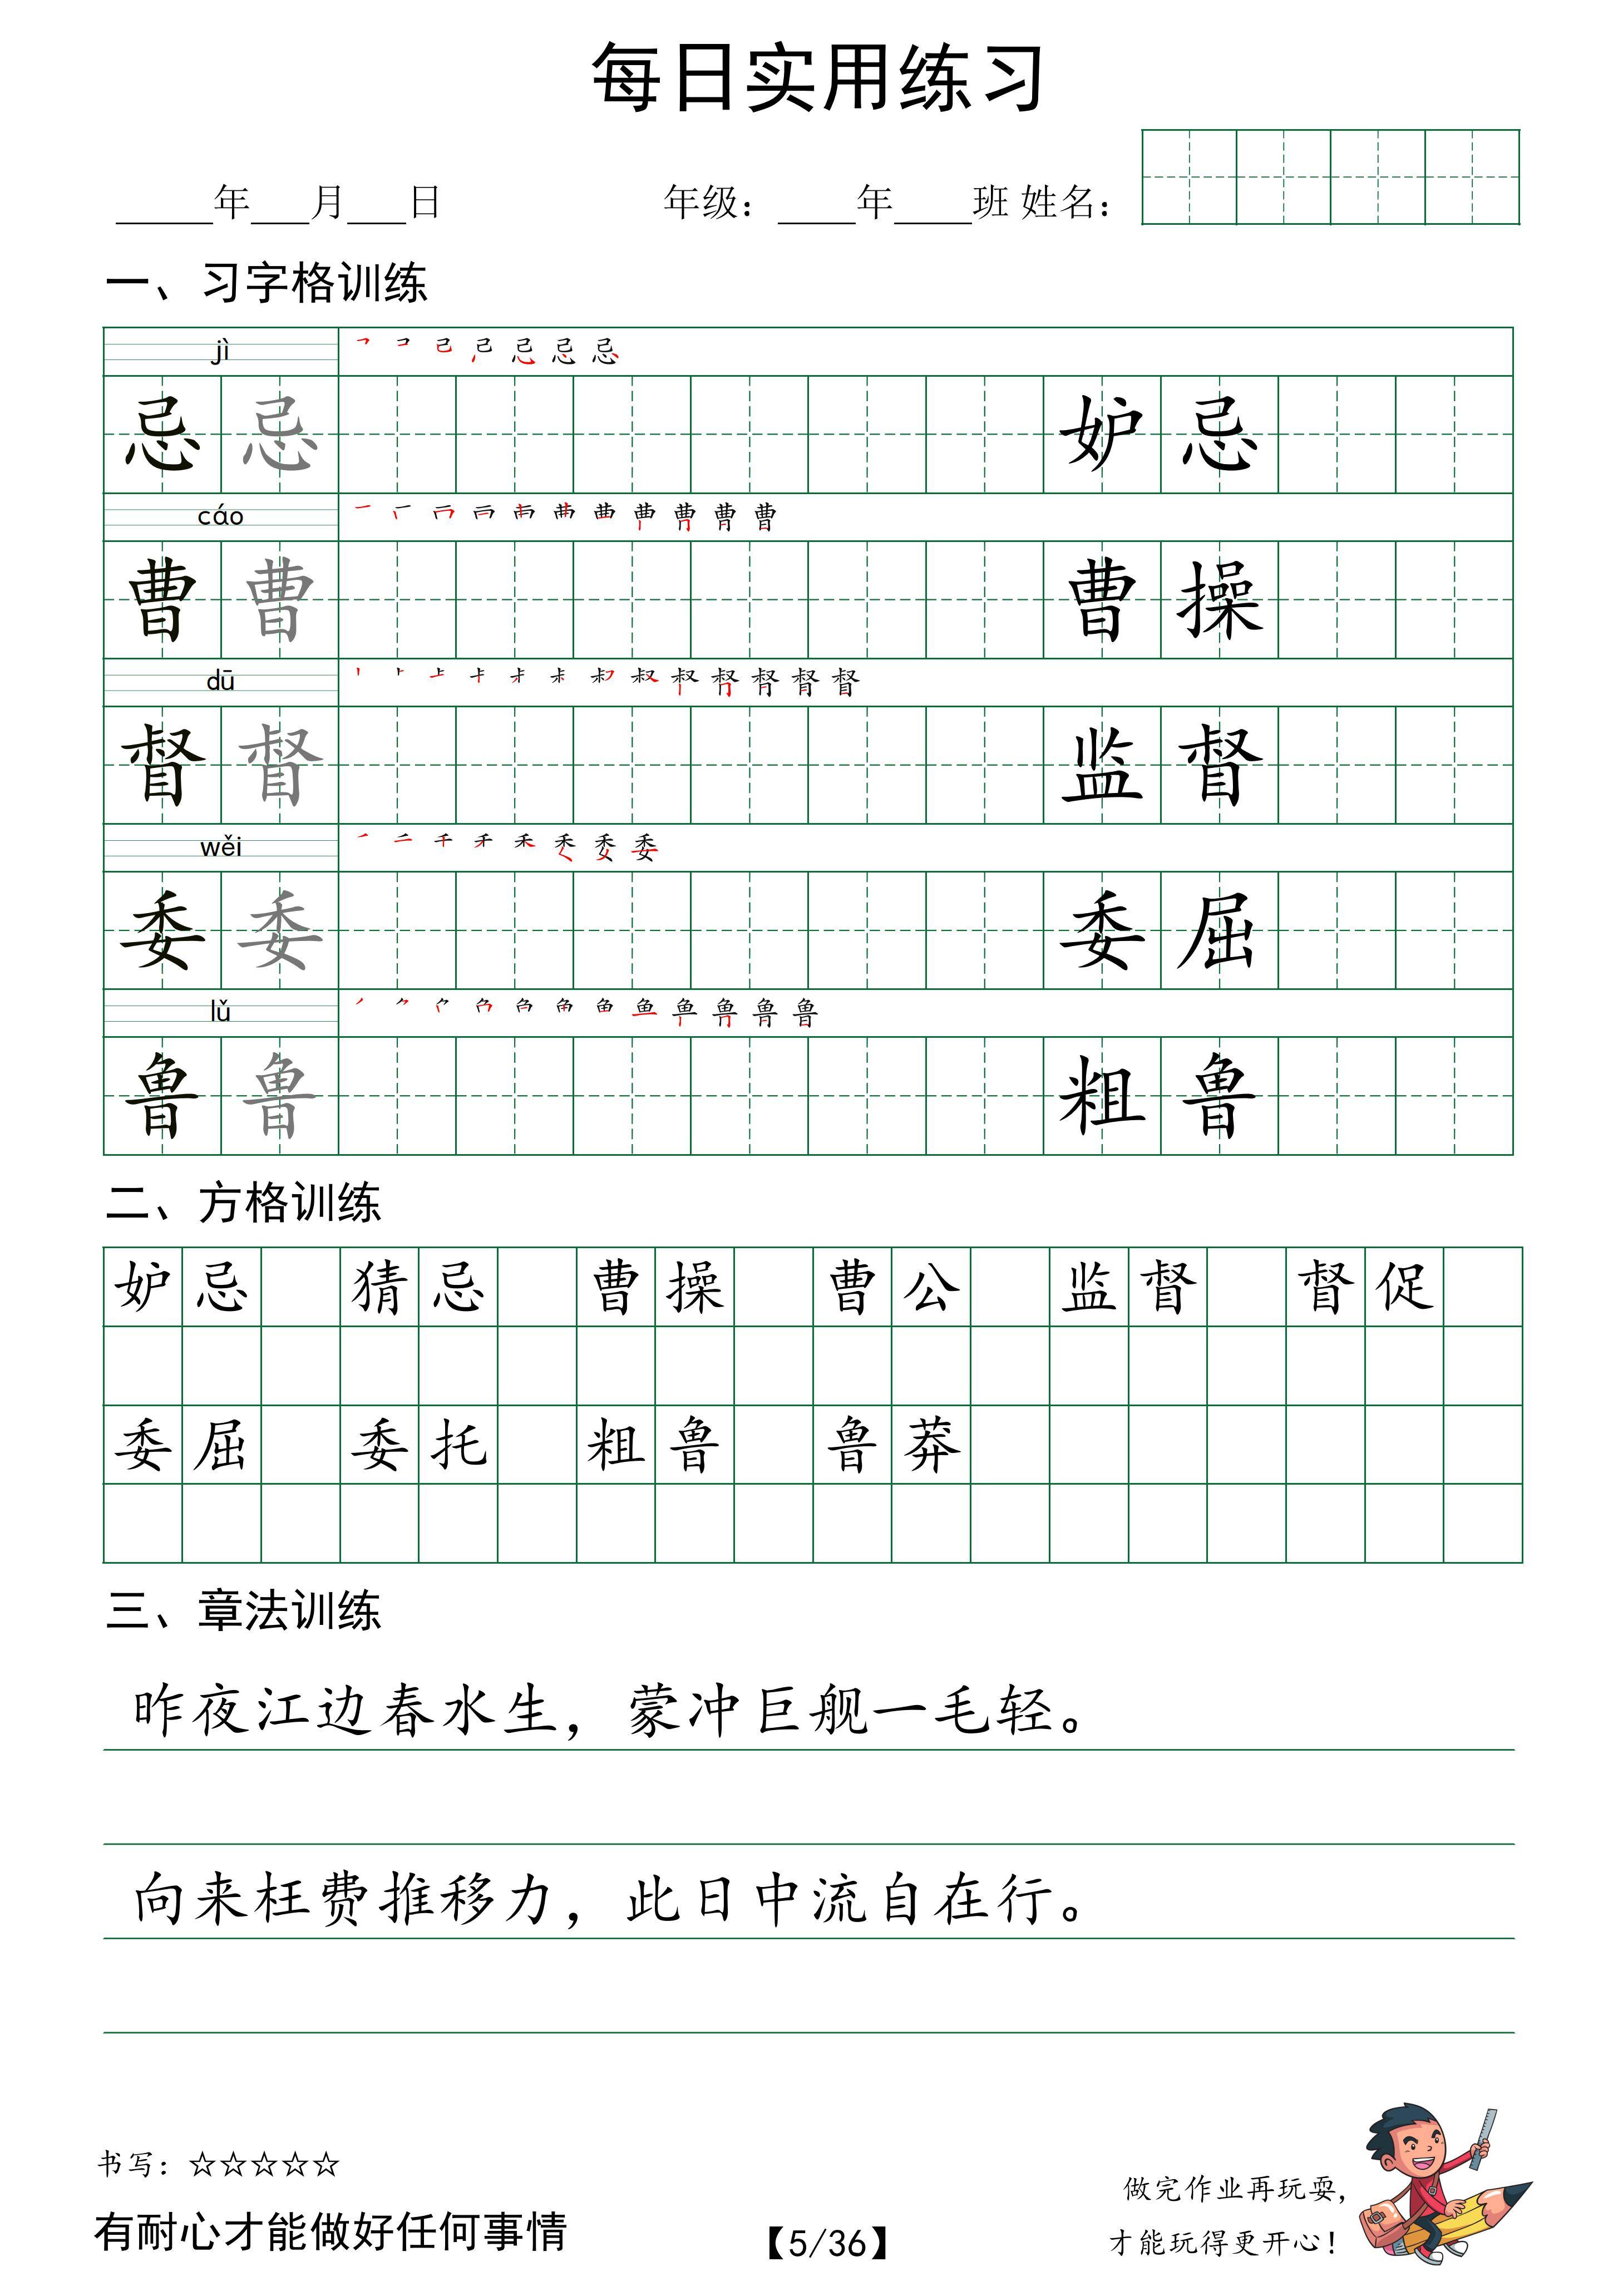 每日实用练习
_____年___月___日 年级：____年____班 姓名：
一、习字格训练
jì
忌 忌 妒 忌
cáo
曹 曹 曹 操
dū
督 督 监 督
wěi
委 委 委 屈
lǔ
鲁 鲁 粗 鲁
二、方格训练
妒 忌 猜 忌 曹 操 曹 公 监 督 督 促
委 屈 委 托 粗 鲁 鲁 莽
三、章法训练
昨夜江边春水生，蒙冲巨舰一毛轻。
向来枉费推移力，此日中流自在行。
书写：☆☆☆☆☆
有耐心才能做好任何事情
【5/36】
做完作业再玩耍，
才能玩得更开心！